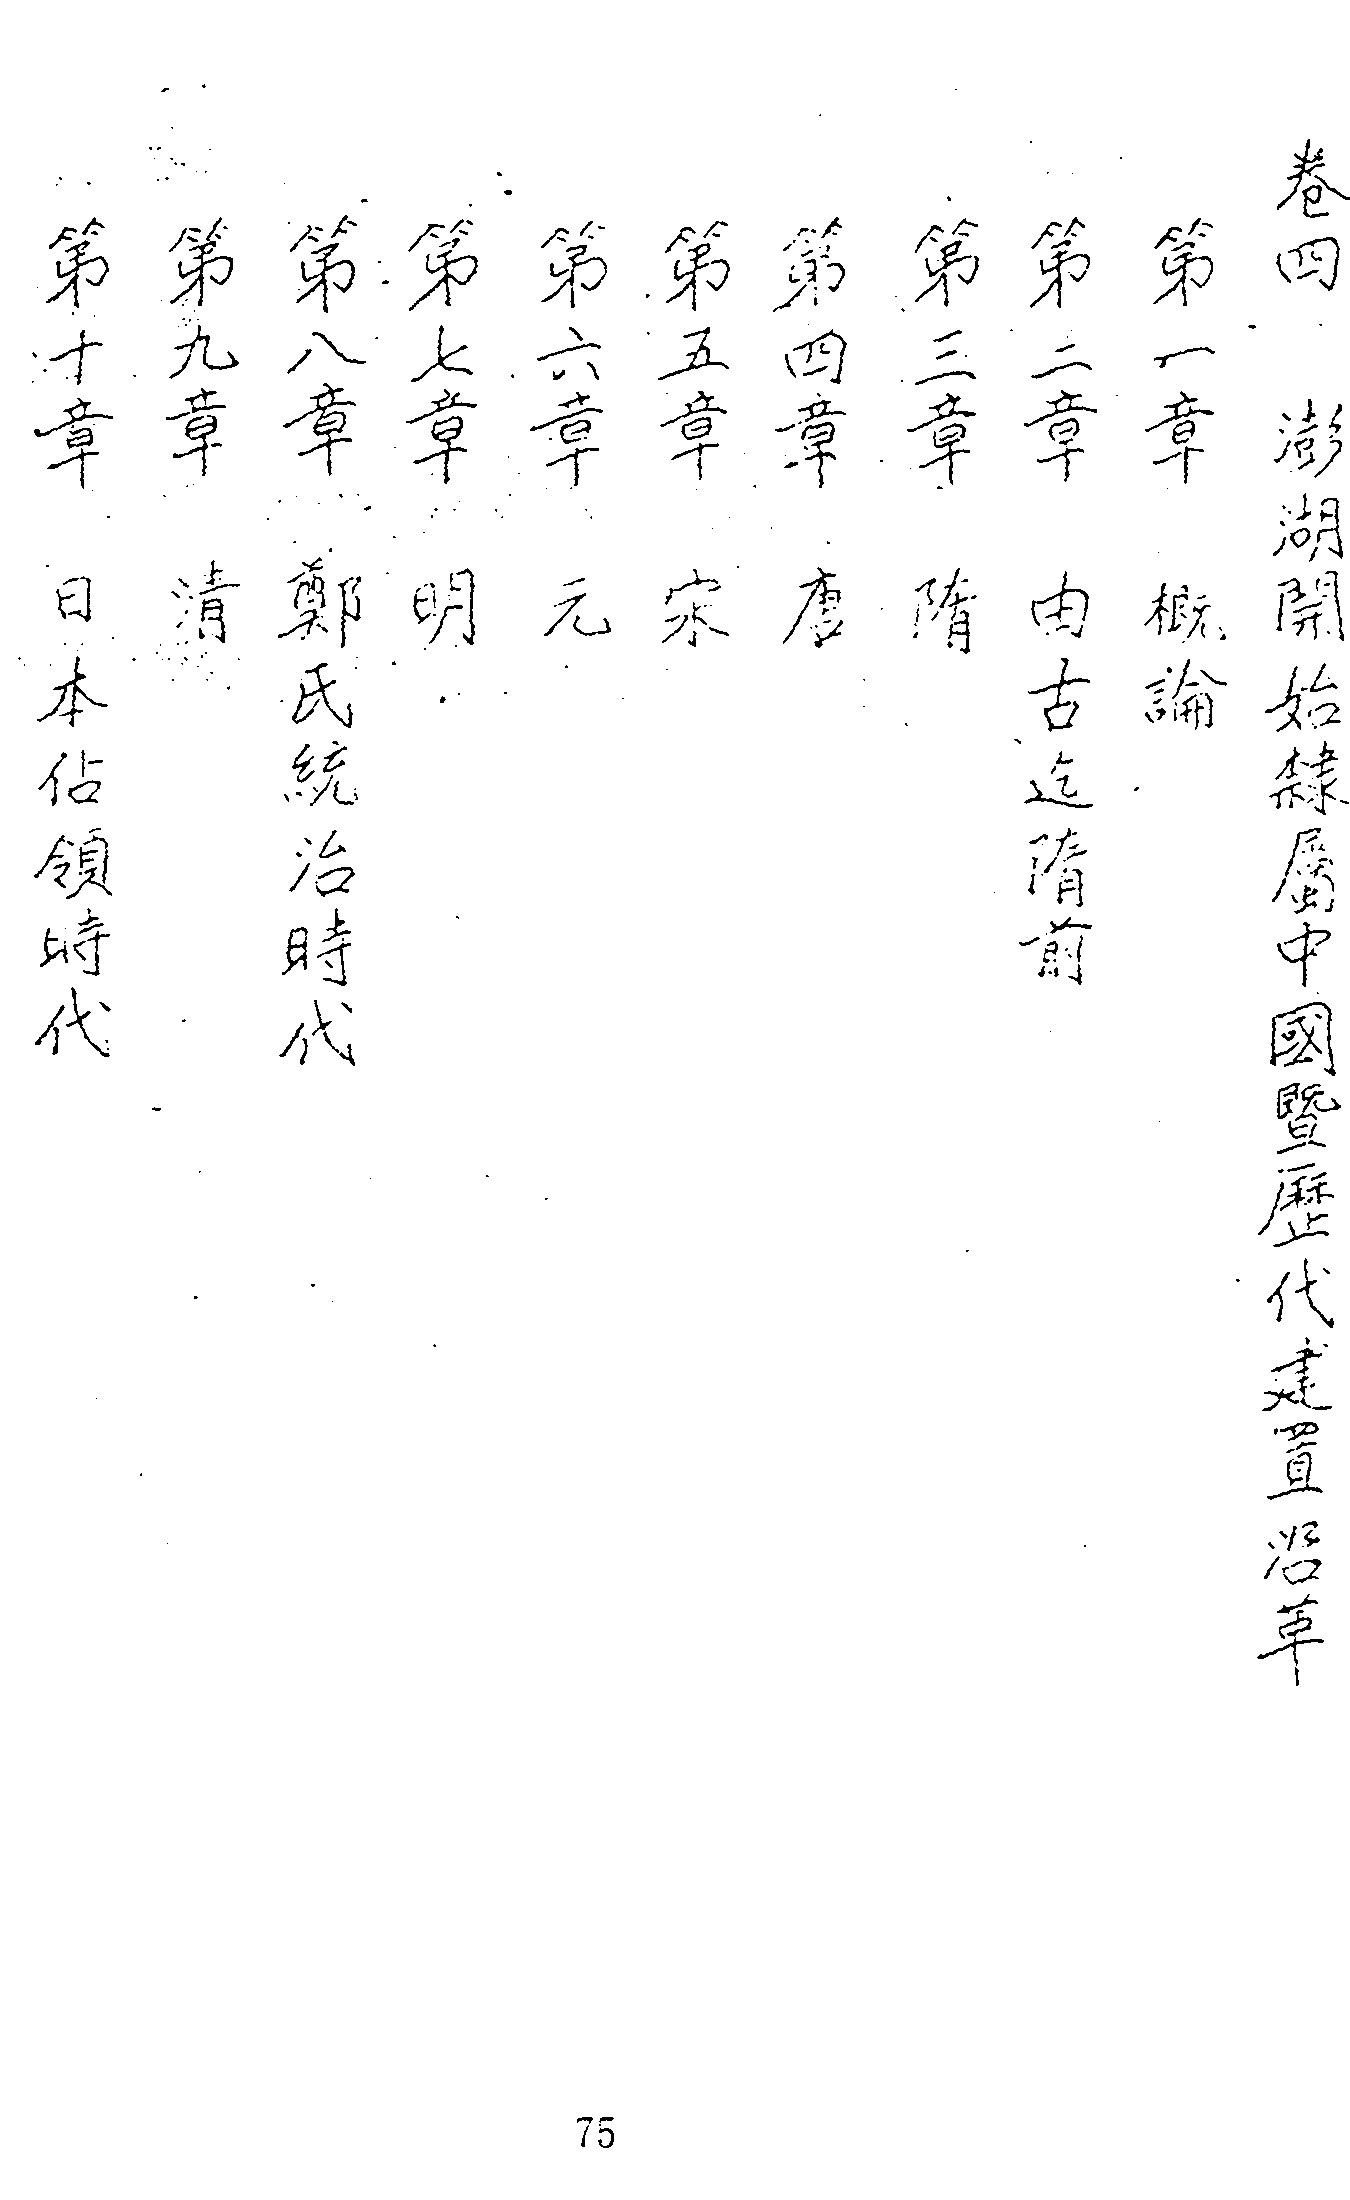 卷四　澎湖開始隸屬中國暨歷代建置沿革
第一章　概論
第二章　由古迄隋前
第三章　隋
第四章　唐
第五章　宋
第六章　元
第七章　明
第八章　鄭氏統治時代
第九章　清
第十章　日本佔領時代
75